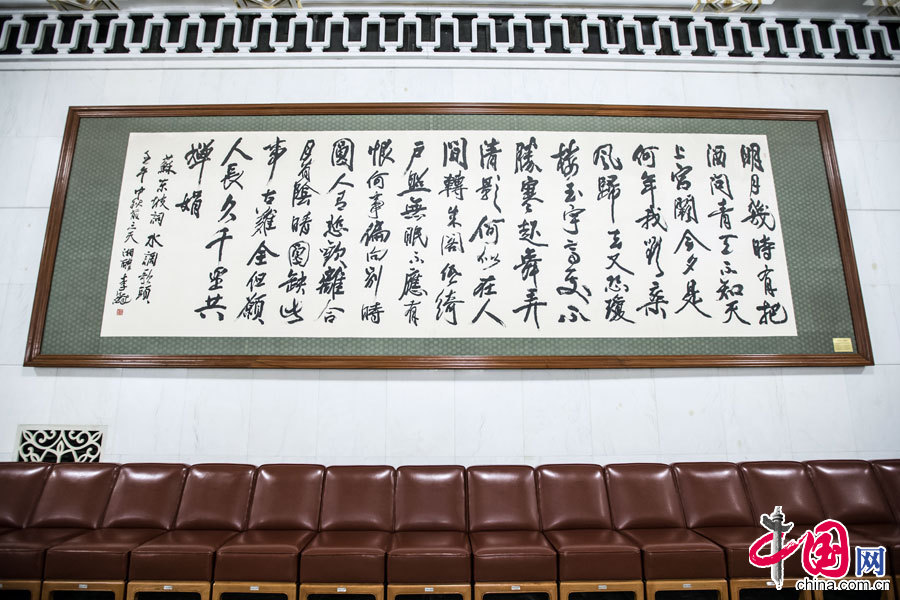 明月幾時有把
酒問青天不知天
上宮闕今夕是
何年我欲乘
風歸去又恐瓊
樓玉宇高處不
勝寒起舞弄
清影何似在人
間轉朱閣低綺
戶照無眠不應有
恨何事偏向別時
圓人有悲歡離合
月有陰晴圓缺此
事古難全但願
人長久千里共
嬋娟
蘇東坡詞水調歌頭
壬午中秋前三天湘醴李鐸
中国网
china.com.cn